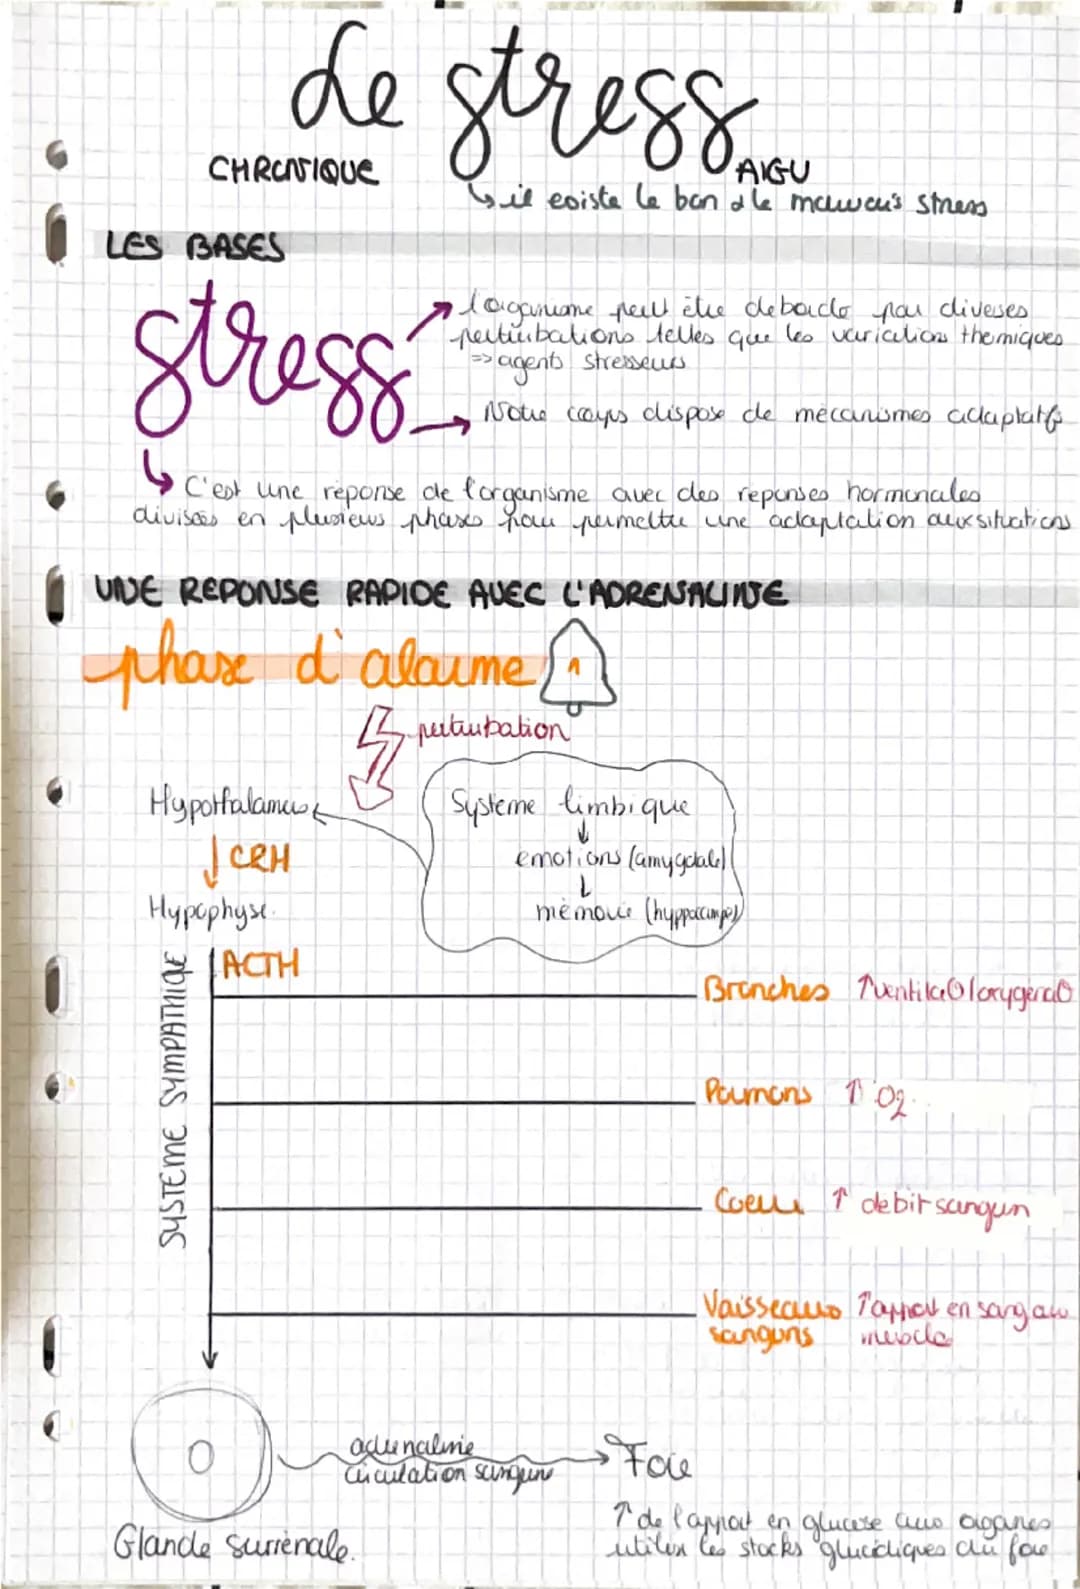 Le stress
CHRONIQUE
AIGU
↳ il existe le bon & le mauvais stress
LES BASES
stress
→ l'organisme peut être debordo par diverses
perturbations telles que les variations thermiques
=> agents stresseurs
→ Notre corps dispose de mécanismes adaptatifs
↳ C'est une réponse de l'organisme avec des reponses hormonales
divisées en plusieurs phases pour permettre une adaptation aux situations
UNE REPONSE RAPIDE AVEC L'ADRENALINE
phase d'alarme
perturbation
Hypothalamus
Système limbique
↓
↓ CRH
emotions (amygdale)
↓
Hypophyse
mémoire (hyppocampe)
ACTH
SYSTEME SYMPATHIQUE
Bronches ↑ventilaO/oxygénaO
Poumons ↑ O2
Coeur ↑ debit sanguin
Vaisseaux ↑apport en sang au
sanguins muscle
adrenaline
circulation sanguine
→ Foie
Glande surrénale.
↑ de l'apport en glucose aux organes
utilise les stocks glucidiques du foie